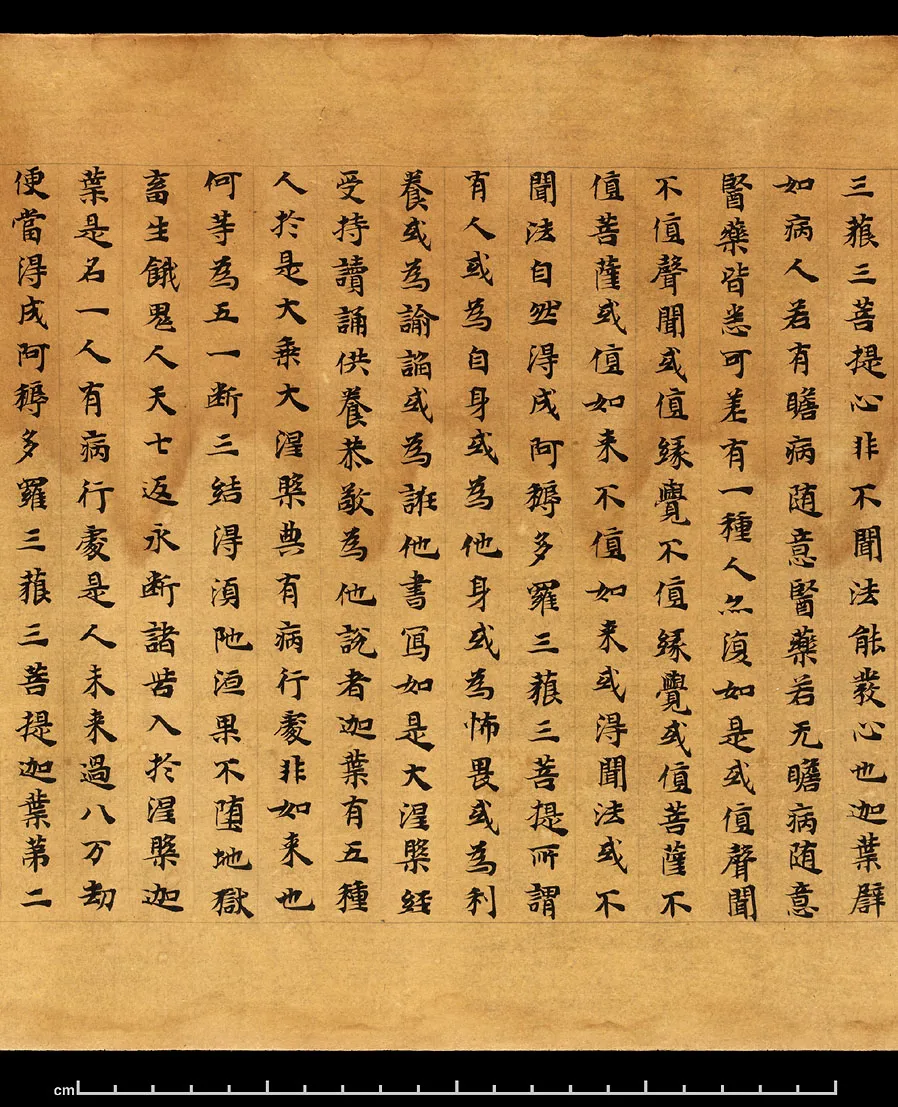 三藐三菩提心非不聞法能發心也迦葉辟
如病人若有瞻病随意醫藥若无瞻病随意
醫藥皆悉可差有一種人亦復如是或值聲聞
不值聲聞或值緣覺不值緣覺或值菩薩不
值菩薩或值如来不值如来或得聞法或不
聞法自然得成阿耨多羅三藐三菩提所謂
有人或為自身或為他身或為怖畏或為利
養或為諭諂或為誑他書寫如是大涅槃經
受持讀誦供養恭敬為他說者迦葉有五種
人於是大乘大涅槃典有病行處非如来也
何等為五一断三結得湏陁洹果不墮地獄
畜生餓鬼人天七返永断諸苦入於涅槃迦
葉是名一人有病行處是人未来過八万劫
便當得成阿耨多羅三藐三菩提迦葉苐二
cm